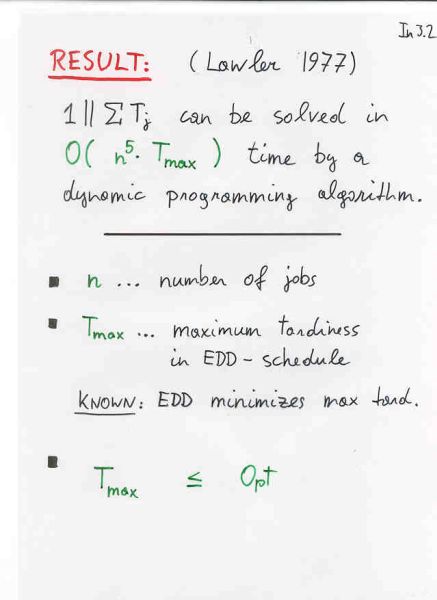 In 3.2
RESULT: (Lawler 1977)
1 || ΣTj can be solved in
O( n⁵· Tmax ) time by a
dynamic programming algorithm.
▪ n ... number of jobs
▪ Tmax ... maximum tardiness
in EDD - schedule
KNOWN: EDD minimizes max tard.
▪ Tmax ≤ Opt